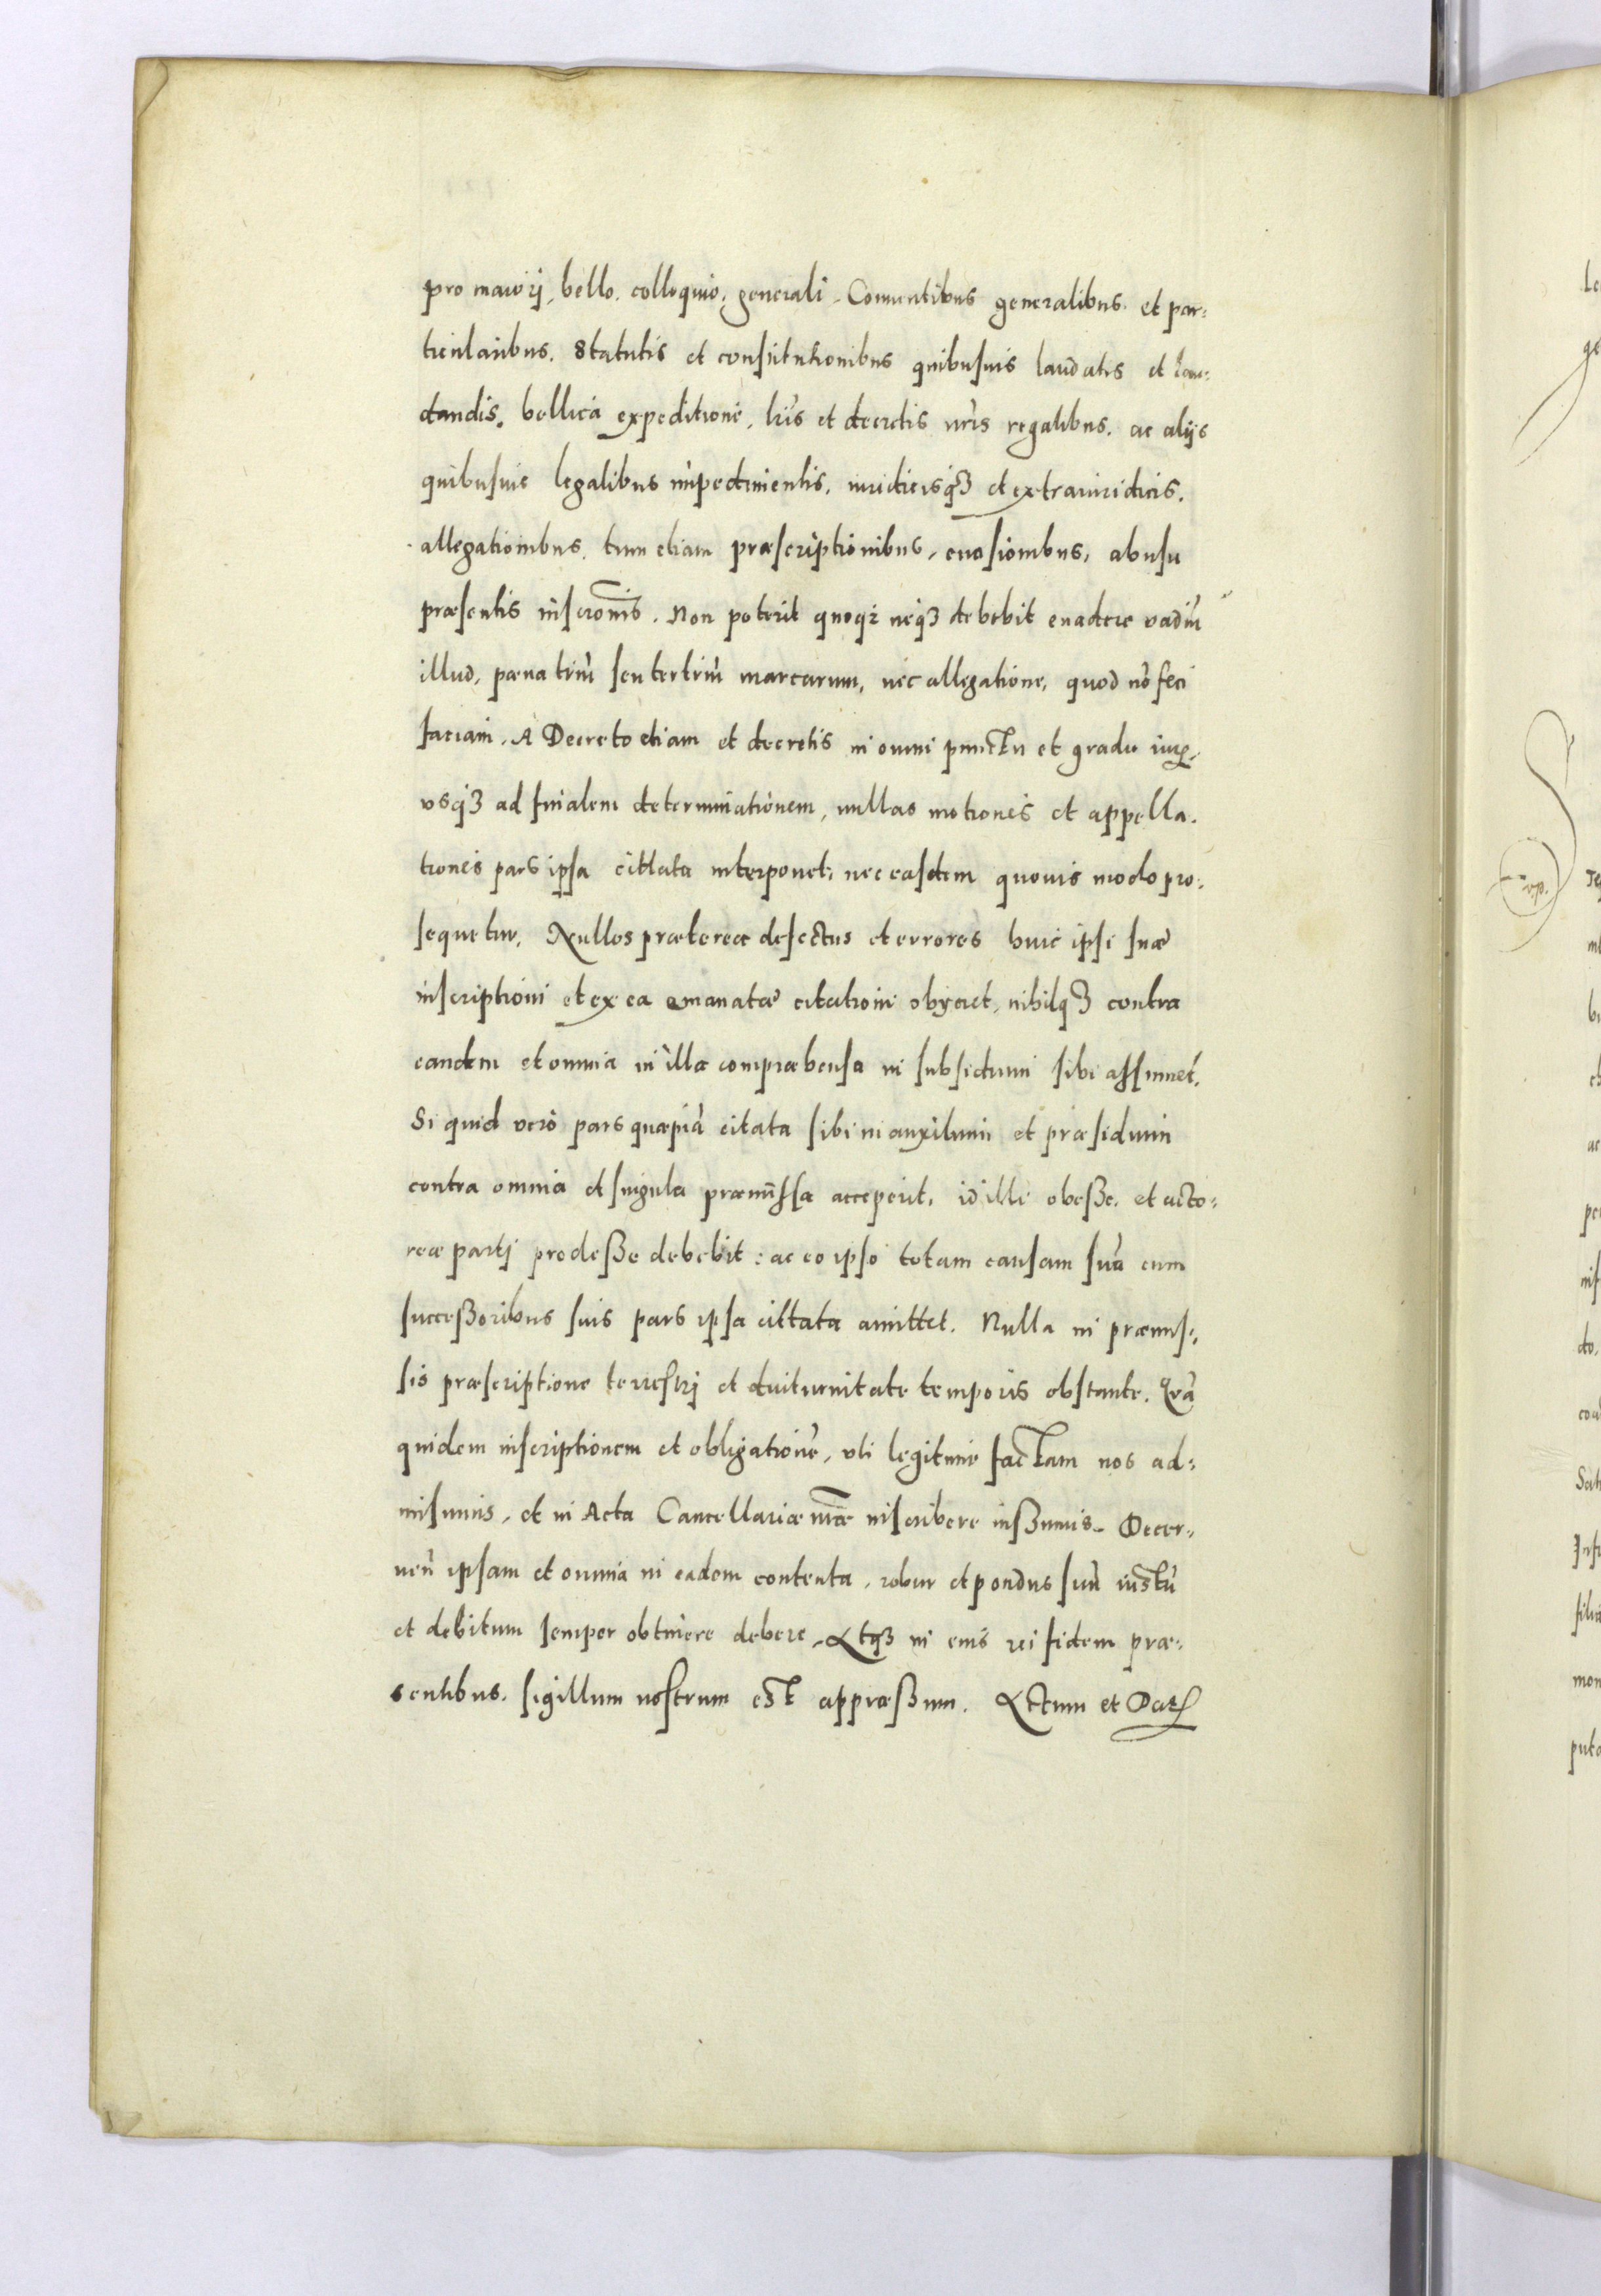 pro maiorj, bello, colloquio, generali, Conuentibus generalibus et par:
ticularibus. Statutis et constitutionibus quibusuis laudatis et lau:
dandis, bellica expeditione, lr̃is et decretis nr̃is regalibus, ac alijs
quibusuis legalibus impedimentis, iuridicisqȝ et extraiuridicis,
allegationibus, tum etiam præscriptionibus, euasionibus, abusu
præsentis inscr̃onis. Non poterit quoqȝ neqȝ debebit euadere vadiũ
illud, pœna triũ seu tertriũ marcarum, nec allegatione, quod nõ feci
faciam. A Decreto etiam et decretis in omni punctu et gradu iur̃,
vsqȝ ad finalem determinationem, nullas motiones et appella:
tiones pars ipsa cittata interponet, nec easdem quouis modo pro:
sequetur. Nullos præterea defectus et errores huic ipsi suæ
inscriptioni et ex ea emanatæ citationi obijciet, nihilqȝ contra
eandem et omnia in illa compræhensa in subsidium sibi assumet.
Si quid verò pars quæpiã citata sibi in auxilium et præsidium
contra omnia et singula præmissa acceperit, id illi obesse, et acto:
reæ partj prodesse debebit: ac eo ipso totam causam suã cum
successoribus suis pars ipsa cittata amittet. Nulla in præmis:
sis præscriptione terrestrj et diuiturnitate temporis obstante. Quã
quidem inscriptionem et obligationẽ, vti legitime factam nos ad:
misimus, et in Acta Cancellariæ nr̃æ inscribere iussimus. Decer:
nen̄ ipsam et omnia in eadem contenta, robur et pondus suũ iustũ
et debitum semper obtinere debere. Atqȝ in eius rei fidem præ:
sentibus, sigillum nostrum est appræssum. Actum et Dat̃